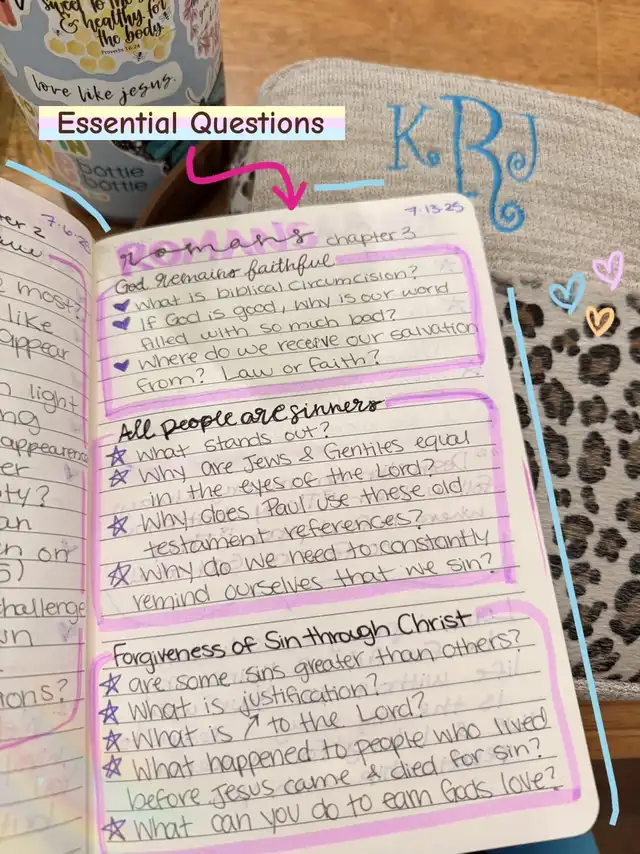 sweet to the
& healthy for
the body
Proverbs 16:24
love like jesus.
Essential Questions
bottle
bottle
KRJ
7·6·25
ter 2
most?
like
appear
light
ng
appearence
er
ty?
an
en on
5)
challenge
wn
ions?
7·13·25
ROMANS
romans chapter 3
God remains faithful
What is biblical circumcision?
If God is good, why is our world
filled with so much bad?
Where do we receive our salvation
from? Law or faith?
All people are sinners
What stands out?
Why are Jews & Gentiles equal
in the eyes of the Lord?
Why does Paul use these old
testament references?
Why do we need to constantly
remind ourselves that we sin?
Forgiveness of Sin through Christ
are some sins greater than others?
What is justification?
What is ↗ to the Lord?
What happened to people who lived
before Jesus came & died for sin?
What can you do to earn Gods love?